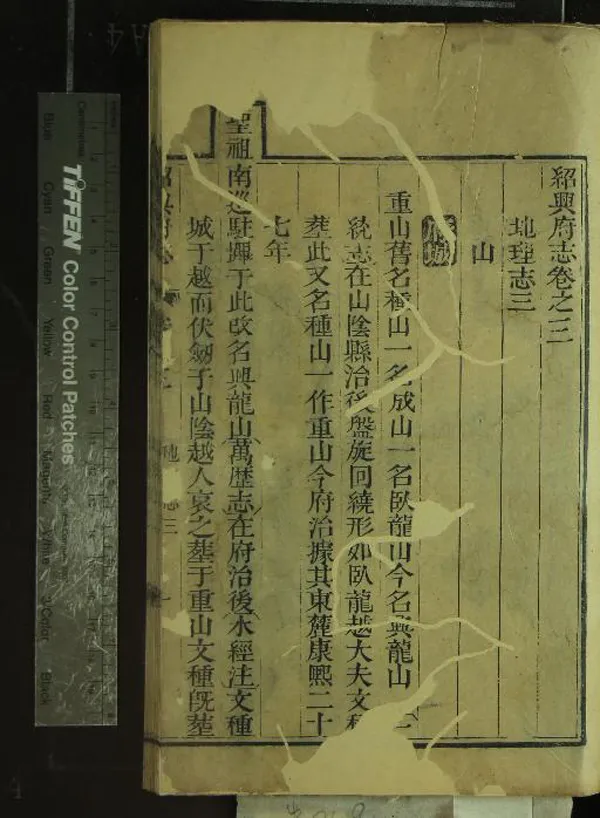 紹興府志卷之三
地理志三
山
府城
重山舊名種山一名成山一名臥龍山今名興龍山 一
統志在山陰縣治後盤旋回繞形如臥龍越大夫文種
葬此又名種山一作重山今府治據其東麓康熙二十
七年
聖祖南巡駐蹕于此改名興龍山萬歷志在府治後水經注文種
城于越而伏劒于山陰越人哀之塟于重山文種旣塟
地 志三
TIFFEN Color Control Patches
Blue
Cyan
Green
Yellow
Red
Magenta
White
3/Color
Black